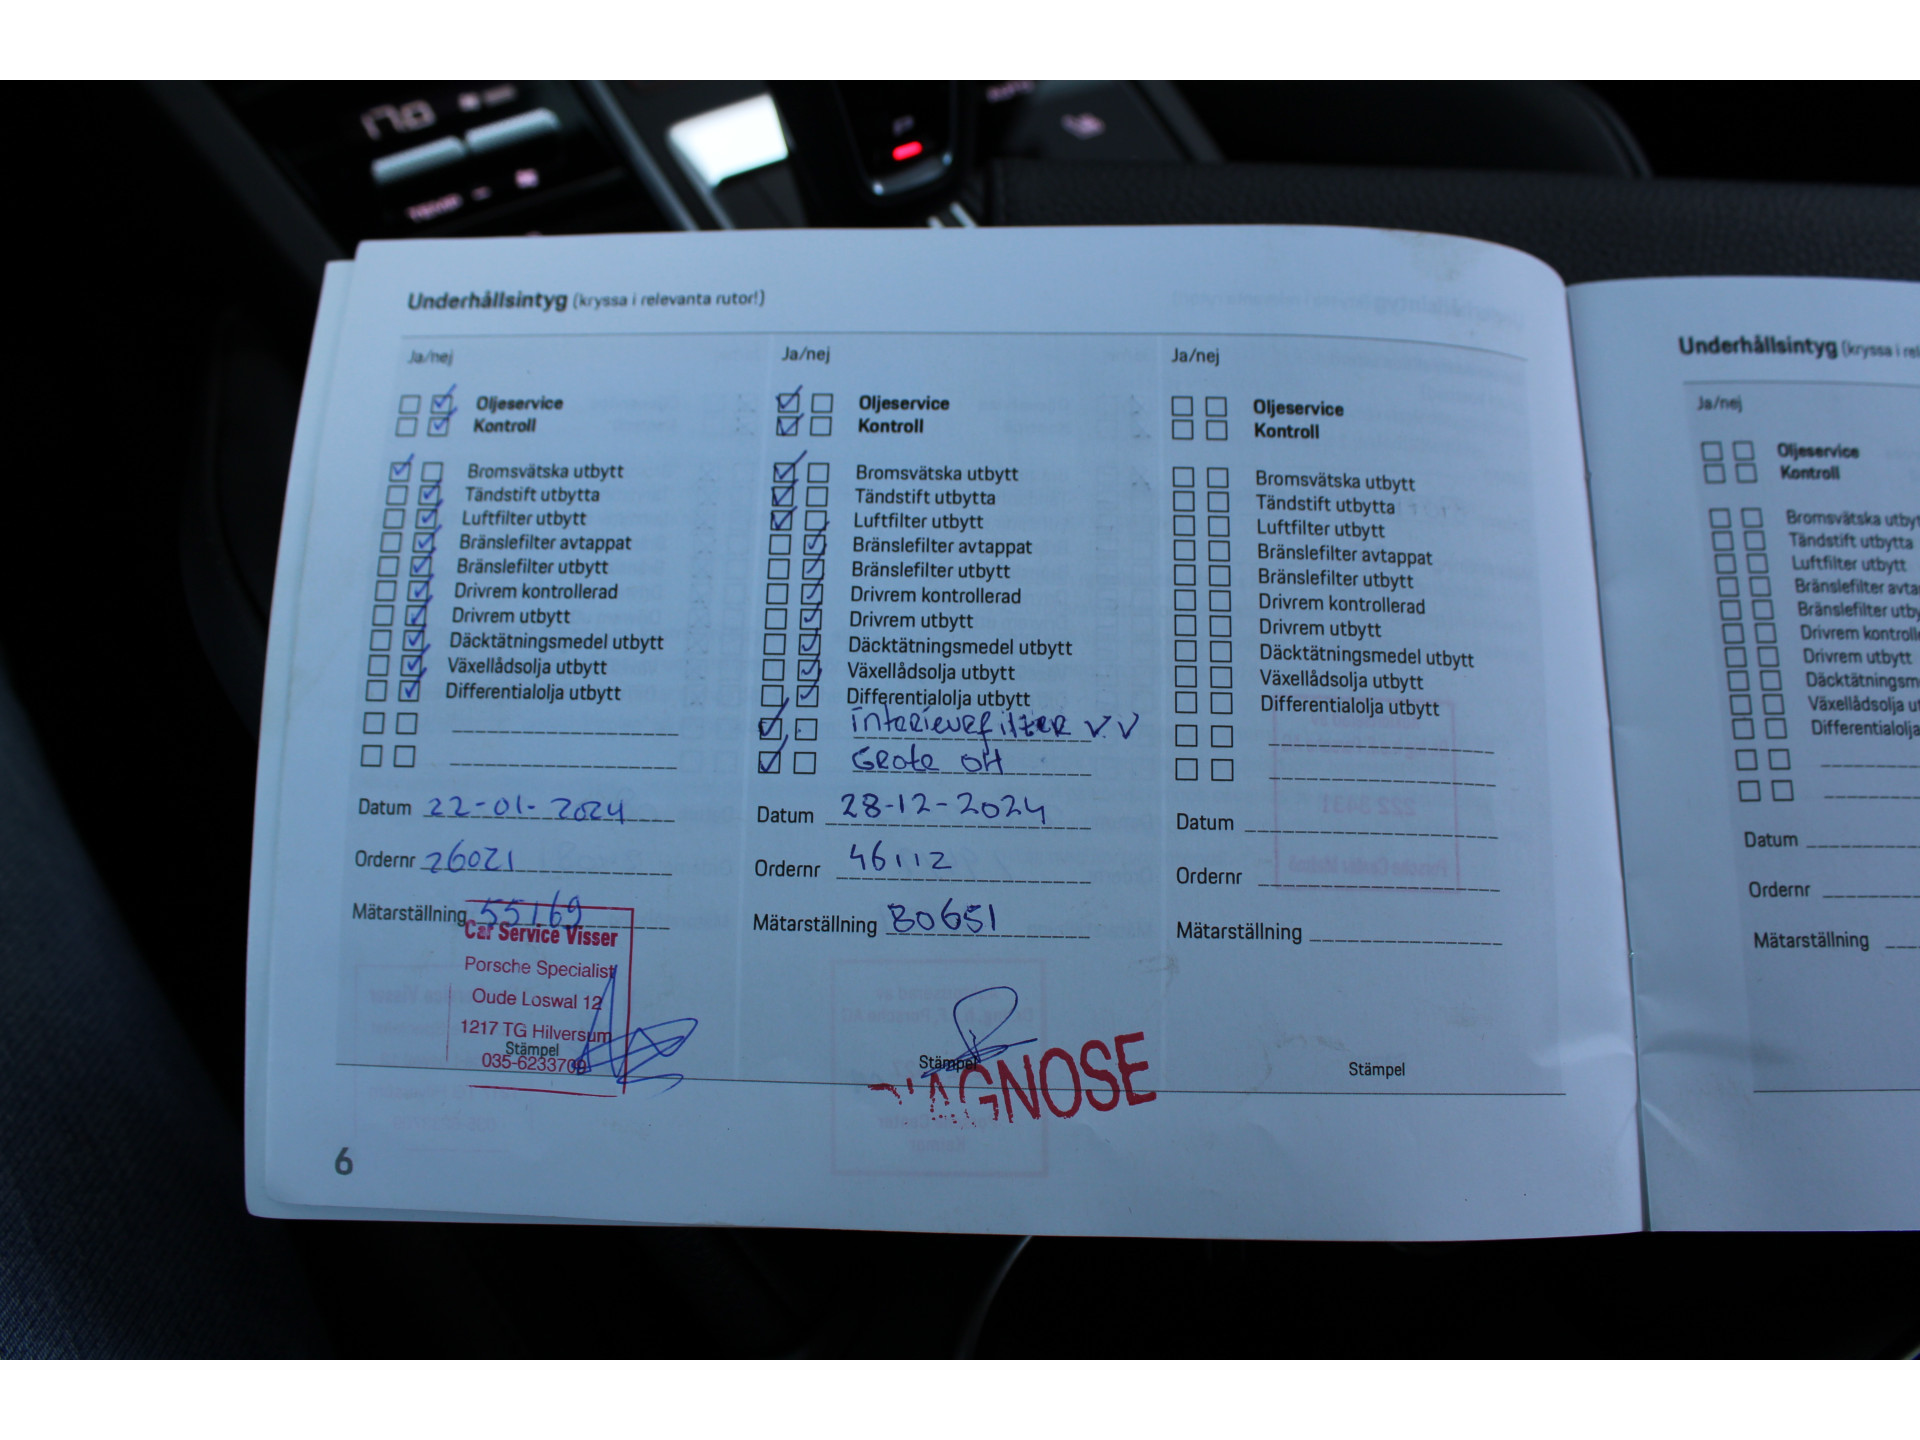 17.0
Underhållsintyg (kryssa i relevanta rutor!)
Ja/nej
Oljeservice
Kontroll
Bromsvätska utbytt
Tändstift utbytta
Luftfilter utbytt
Bränslefilter avtappat
Bränslefilter utbytt
Drivrem kontrollerad
Drivrem utbytt
Däcktätningsmedel utbytt
Växellådsolja utbytt
Differentialolja utbytt
Datum 22-01-2024
Ordernr 26021
Mätarställning 55169
Car Service Visser
Porsche Specialist
Oude Loswal 12
1217 TG Hilversum
Stämpel
035-6233709
Ja/nej
Oljeservice
Kontroll
Bromsvätska utbytt
Tändstift utbytta
Luftfilter utbytt
Bränslefilter avtappat
Bränslefilter utbytt
Drivrem kontrollerad
Drivrem utbytt
Däcktätningsmedel utbytt
Växellådsolja utbytt
Differentialolja utbytt
interieurfilter V.V
Grote OH
Datum 28-12-2024
Ordernr 46112
Mätarställning 80651
Stämpel
DIAGNOSE
Ja/nej
Oljeservice
Kontroll
Bromsvätska utbytt
Tändstift utbytta
Luftfilter utbytt
Bränslefilter avtappat
Bränslefilter utbytt
Drivrem kontrollerad
Drivrem utbytt
Däcktätningsmedel utbytt
Växellådsolja utbytt
Differentialolja utbytt
Datum
Ordernr
Mätarställning
Stämpel
6
Underhållsintyg (kryssa i rel
Ja/nej
Oljeservice
Kontroll
Bromsvätska utbyt
Tändstift utbytta
Luftfilter utbytt
Bränslefilter avta
Bränslefilter utby
Drivrem kontroll
Drivrem utbytt
Däcktätningsm
Växellådsolja u
Differentialolja
Datum
Ordernr
Mätarställning